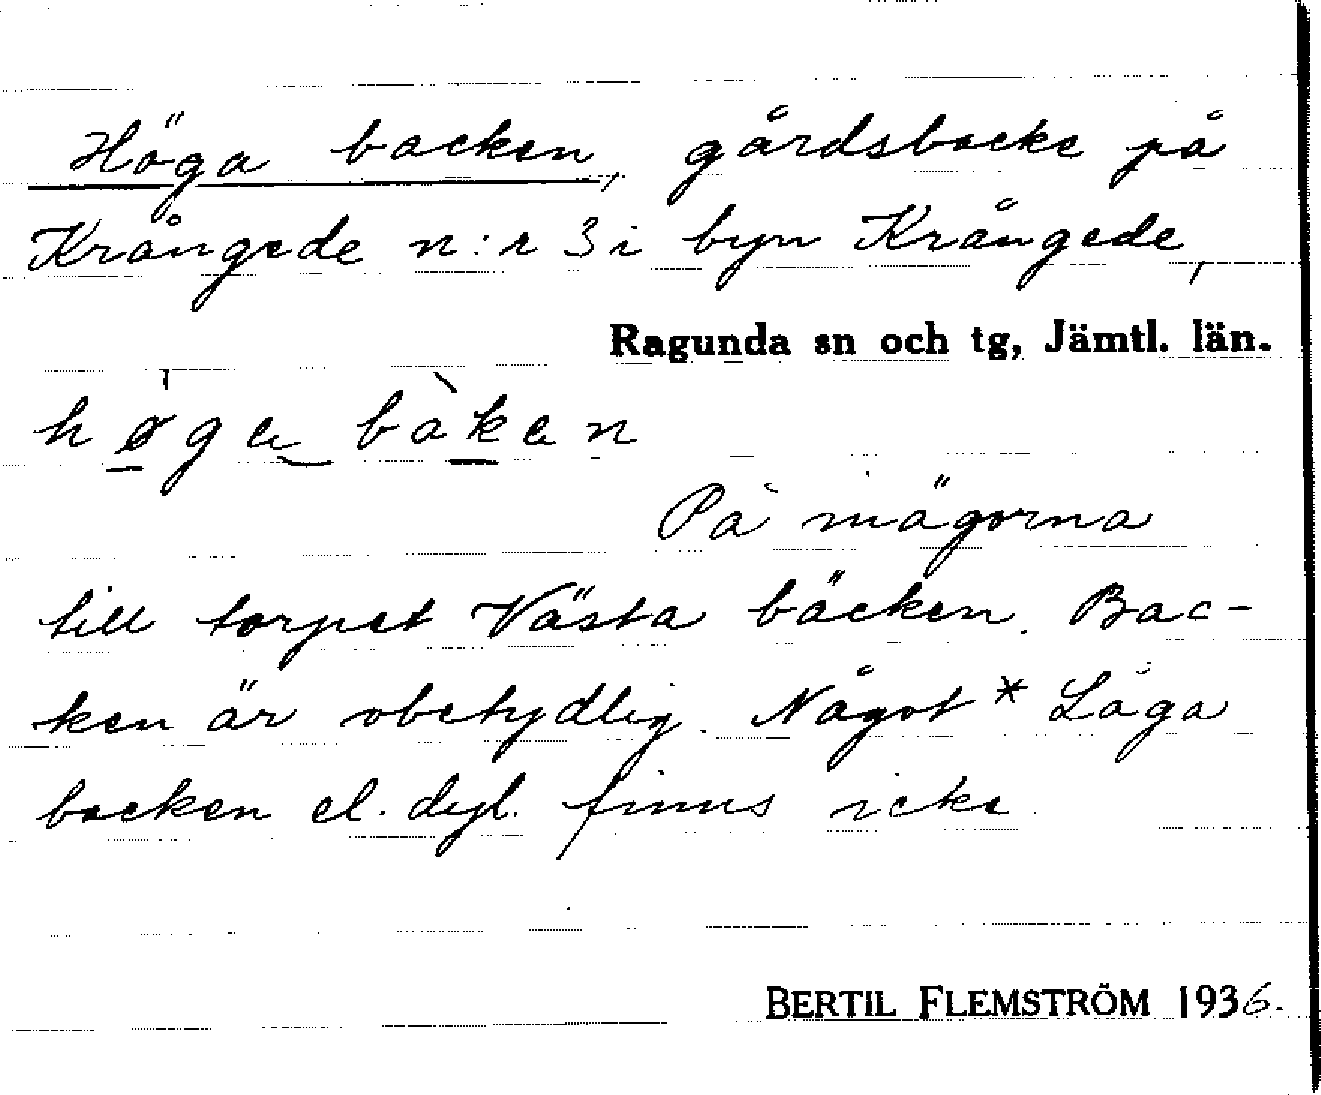 Höga backen, gårdsbacke på
Krångede n:r 3 i byn Krångede,
Ragunda sn och tg, Jämtl. län.
høga bàken
På mägorna
till torpet Västa bäcken. Bac-
ken är obetydlig. Något * Låga
backen el. dyl. finns icke.
BERTIL FLEMSTRÖM 1936.